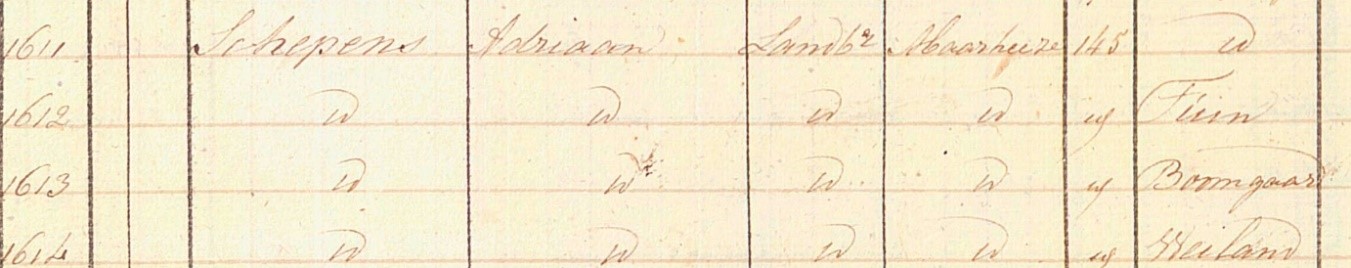 1611 Schepens Adriaan Landbr Maarheeze 145 id
1612 id id id id id Tuin
1613 id id id id id Boomgaard
1614 id id id id id Weiland